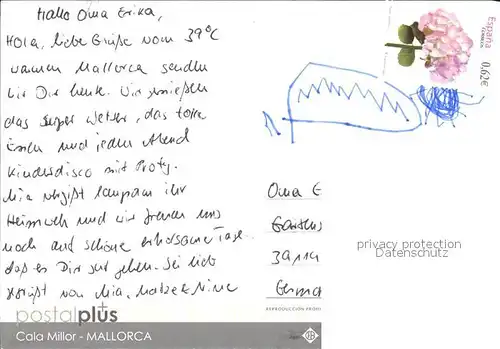 Hallo Oma Erika,
HOLA, liebe Grüße vom 39°C
warmen Mallorca senden
wir Dir heute. Wir genießen
das super Wetter, das tolle
Essen und jeden Abend
Kinderdisco mit Proty.
Mia vergißt langsam ihr
Heimweh und wir freuen uns
noch auf schöne erholsame Tage.
daß es Dir gut gehen. Sei lieb
gegrüßt von Mia, Matze & Nine
España
CORREOS
0,62€
Oma E
39114
German
privacy protection
Datenschutz
REPRODUCCIÓN PROHI
postalplus
Cala Millor - MALLORCA